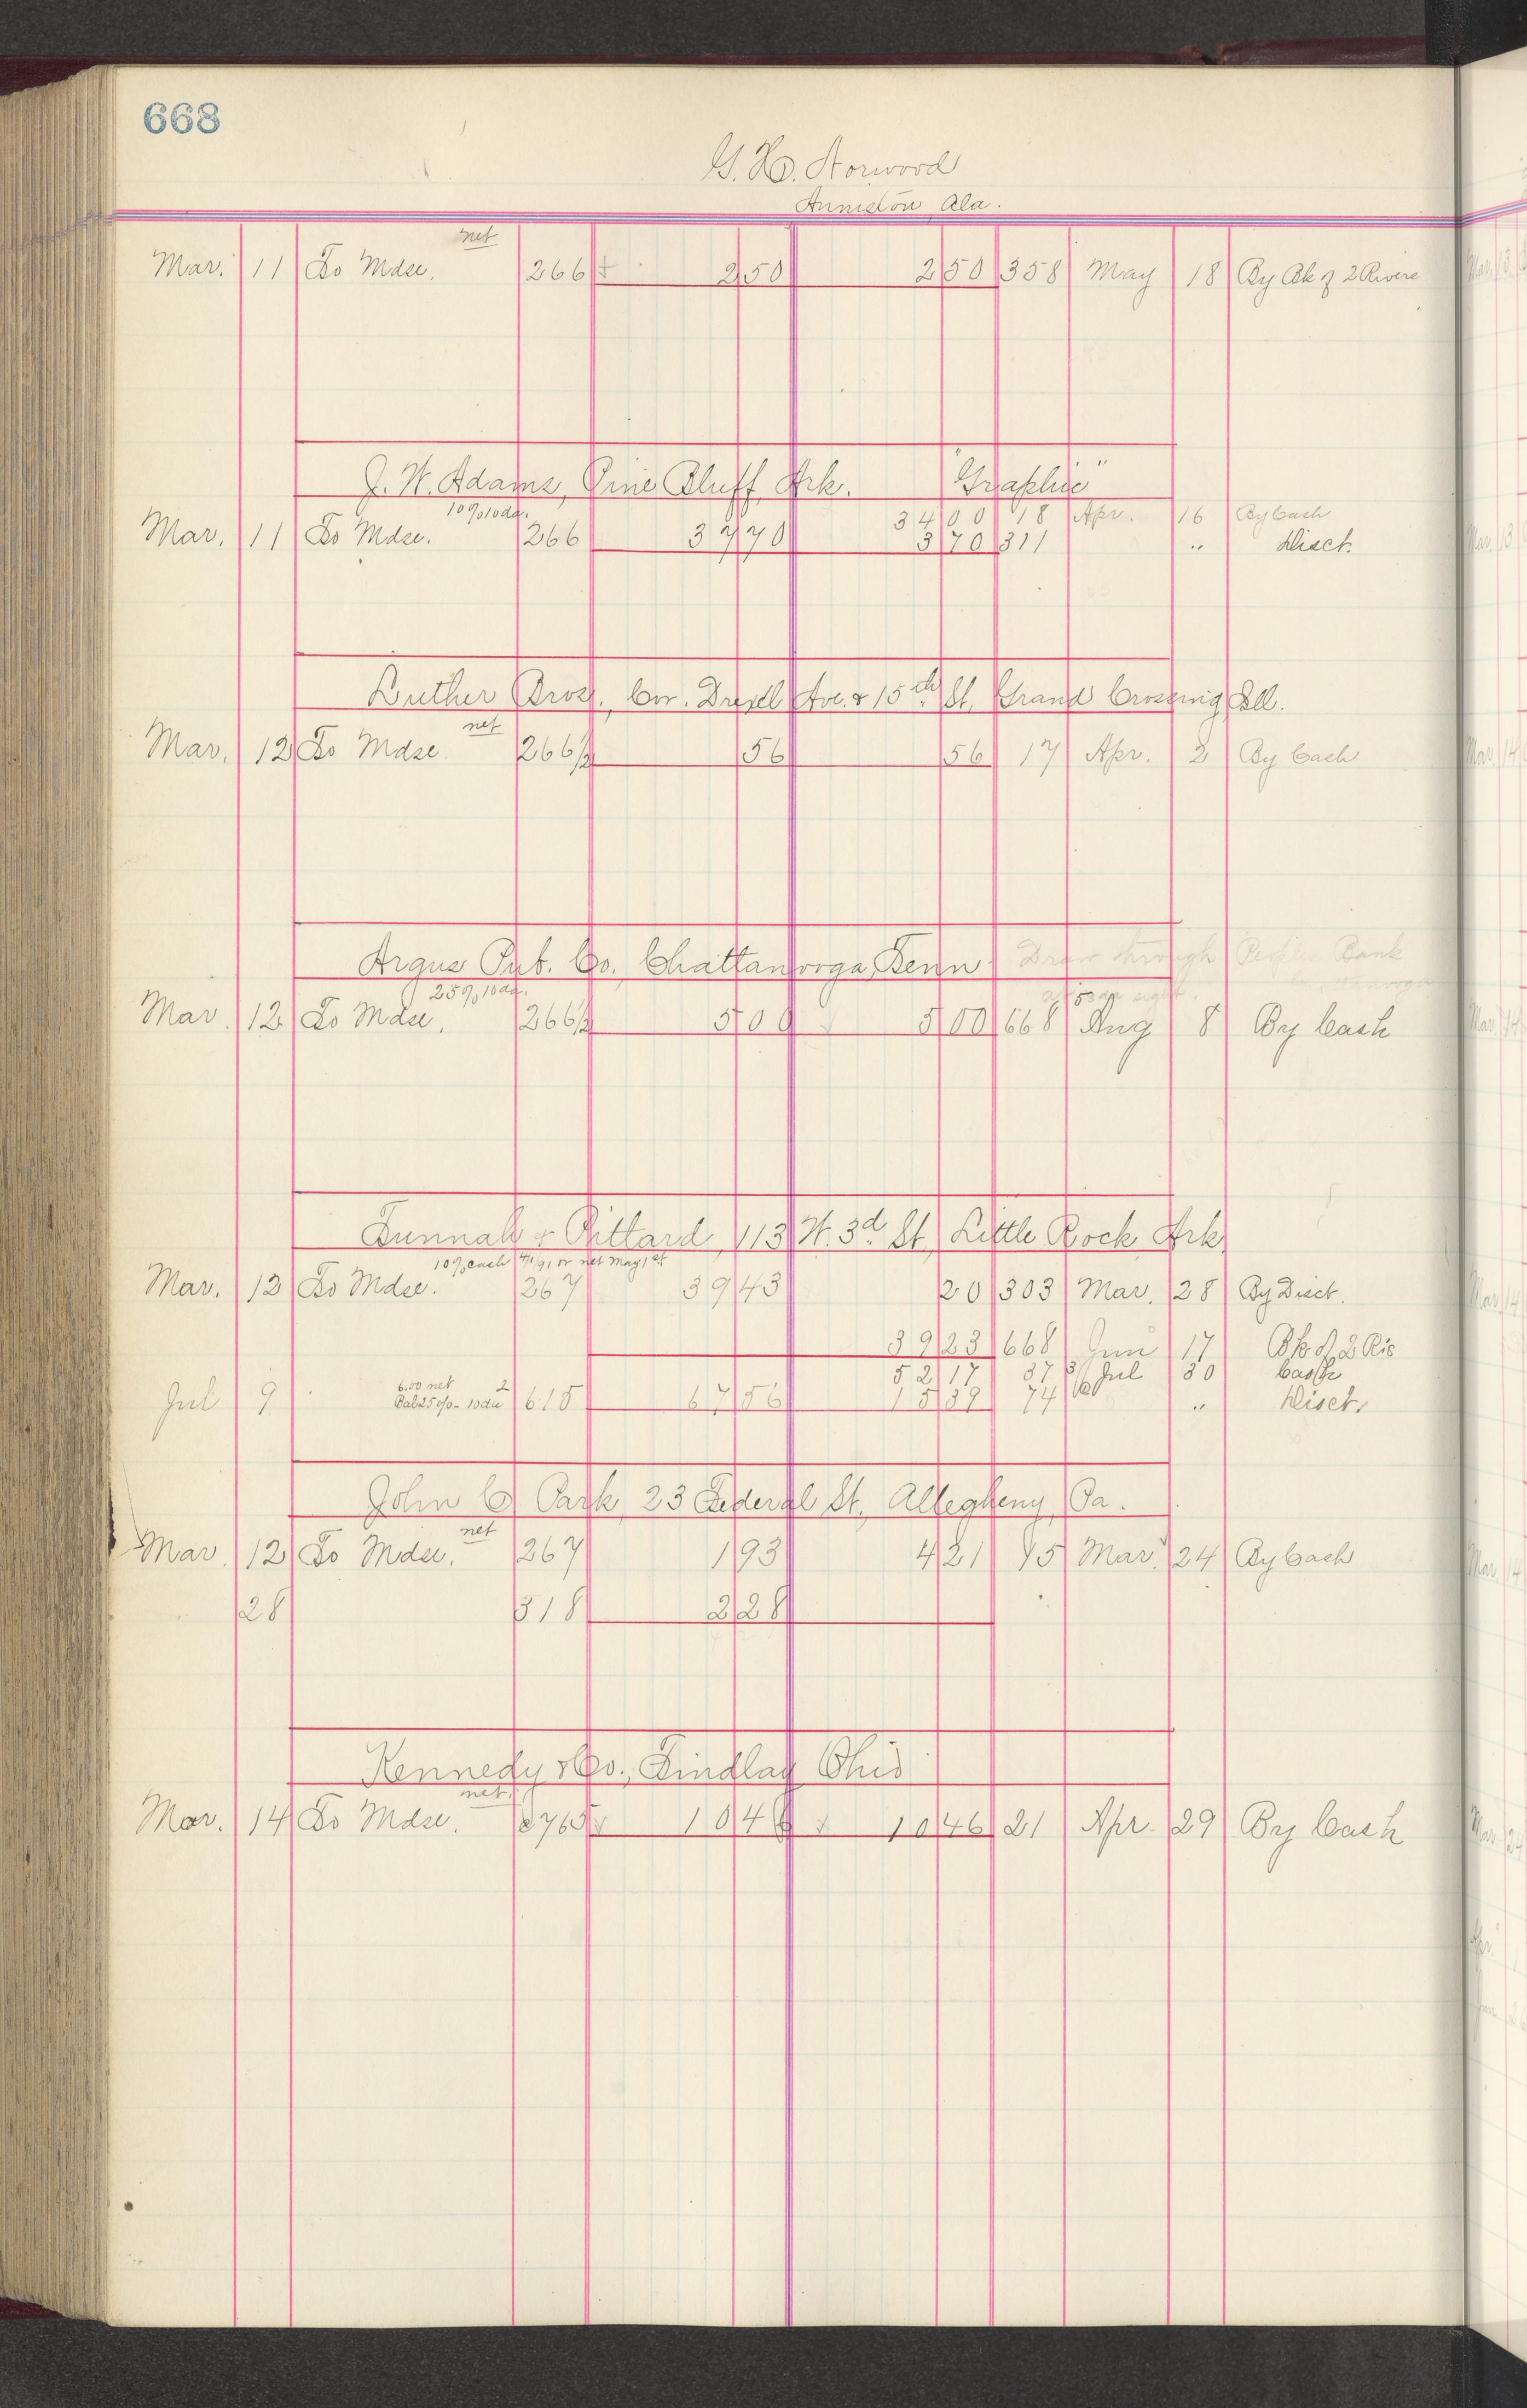 668
G. H. Norwood
Anniston Ala.
net
Mar. 11 To Mdse. 266 2 50 2 50 358 May 18 By Bk of 2 Rivers
J. W. Adams, Pine Bluff, Ark. "Graphic"
10% 10da. 34 00 18 Apr. 16 By Cash
Mar. 11 To Mdse. 266 37 70 3 70 311 " Disct.
Luther Bros., Cor. Drexel Ave. & 15th St, Grand Crossing, Ill.
net
Mar. 12 To Mdse 266½ 56 56 17 Apr. 2 By Cash
Argus Pub. Co. Chattanooga, Tenn. Draw through Peoples Bank
Chattanooga
25% 10da. at 5 da sight.
Mar. 12 To Mdse. 266½ 5 00 5 00 668 Aug 8 By Cash
Tunnah & Pittard, 113 W. 3d St, Little Rock Ark
10% cash 4/1 91 or net May 1st
Mar. 12 To Mdse. 267 39 43 20 303 Mar. 28 By Disct.
39 23 668 Jun 17 Bk of 2 Ris
52 17 37 Jul 30 Cash
6.00 net
Jul 9 Bal 25% - 10da 615 67 56 15 39 74 " Disct.
John C Park, 23 Federal St, Allegheny, Pa.
net
Mar. 12 To Mdse. 267 1 93 4 21 15 Mar. 24 By Cash
28 318 2 28
Kennedy & Co., Findlay Ohio
net
Mar. 14 To Mdse. 10 46 10 46 21 Apr. 29 By Cash